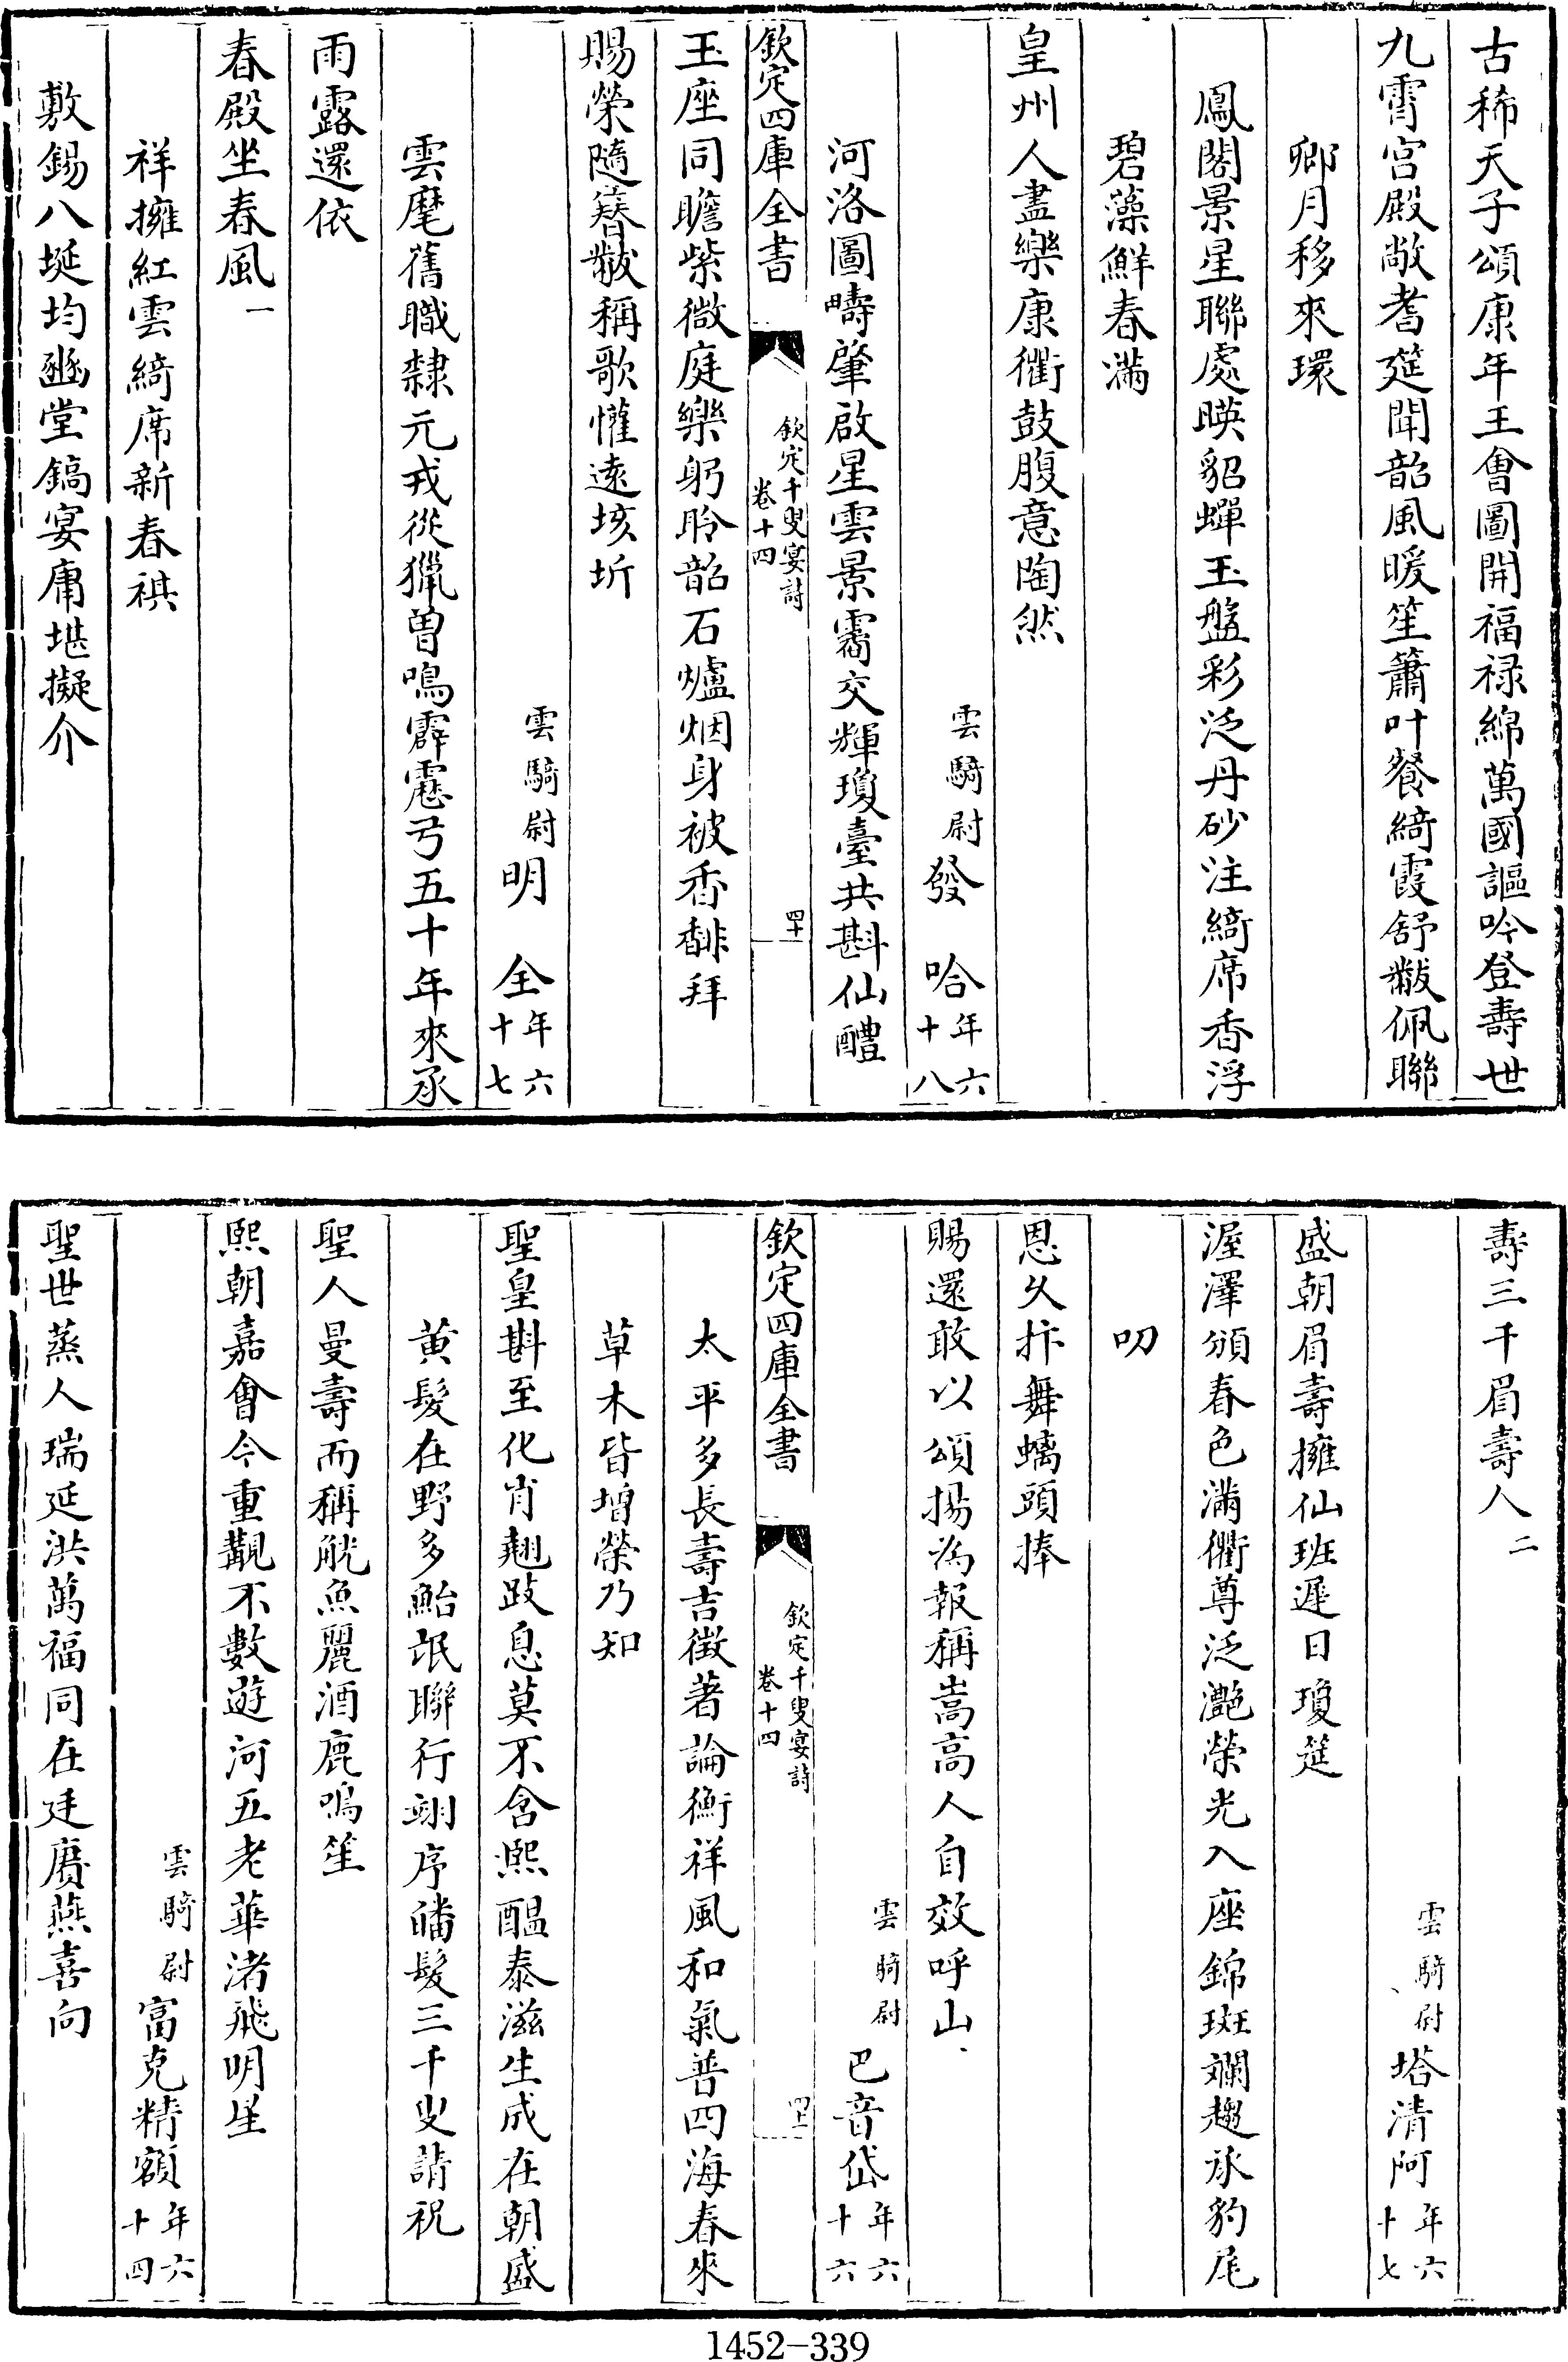 古稀天子頌康年王會圖開福禄綿萬國謳吟登壽世
九霄宫殿敞耆筵聞韶風暖笙簫叶餐綺霞舒黻佩聯
卿月移來環
鳳閣景星聯處暎貂蟬玉盤彩泛丹砂注綺席香浮
碧藻鮮春滿
皇州人盡樂康衢鼓腹意陶然
雲騎尉發哈年六十八
河洛圖疇肇啟星雲景霱交輝瓊臺共斟仙醴
欽定四庫全書
欽定千叟宴詩
卷十四
四十
玉座同瞻紫微庭樂躬聆韶石爐烟身被香馡拜
賜榮隨簪黻稱歌懽遠垓圻
雲騎尉明全年六十七
雲麾舊職隸元戎從獵曽鳴霹靂弓五十年來承
雨露還依
春殿坐春風一
祥擁紅雲綺席新春祺
敷錫八埏均豳堂鎬宴庸堪擬介
壽三千眉壽人二
雲騎尉塔清阿年六十七
盛朝眉壽擁仙班遲日瓊筵
渥澤頒春色滿衢尊泛灧榮光入座錦斑斕趨承豹尾
叨
恩久抃舞螭頭捧
賜還敢以頌揚為報稱嵩高人自效呼山
雲騎尉巴音岱年六十六
欽定四庫全書
欽定千叟宴詩
卷十四
四十一
太平多長壽吉徴著論衡祥風和氣普四海春來
草木皆增榮乃知
聖皇斟至化肖翹跂息莫不含熈醖泰滋生成在朝盛
黄髮在野多鮐氓聯行翊序皤髮三千叟請祝
聖人曼壽而稱觥魚麗酒鹿鳴笙
熈朝嘉會今重覯不數遊河五老華渚飛明星
雲騎尉富克精額年六十四
聖世蒸人瑞延洪萬福同在廷賡燕喜向
1452-339